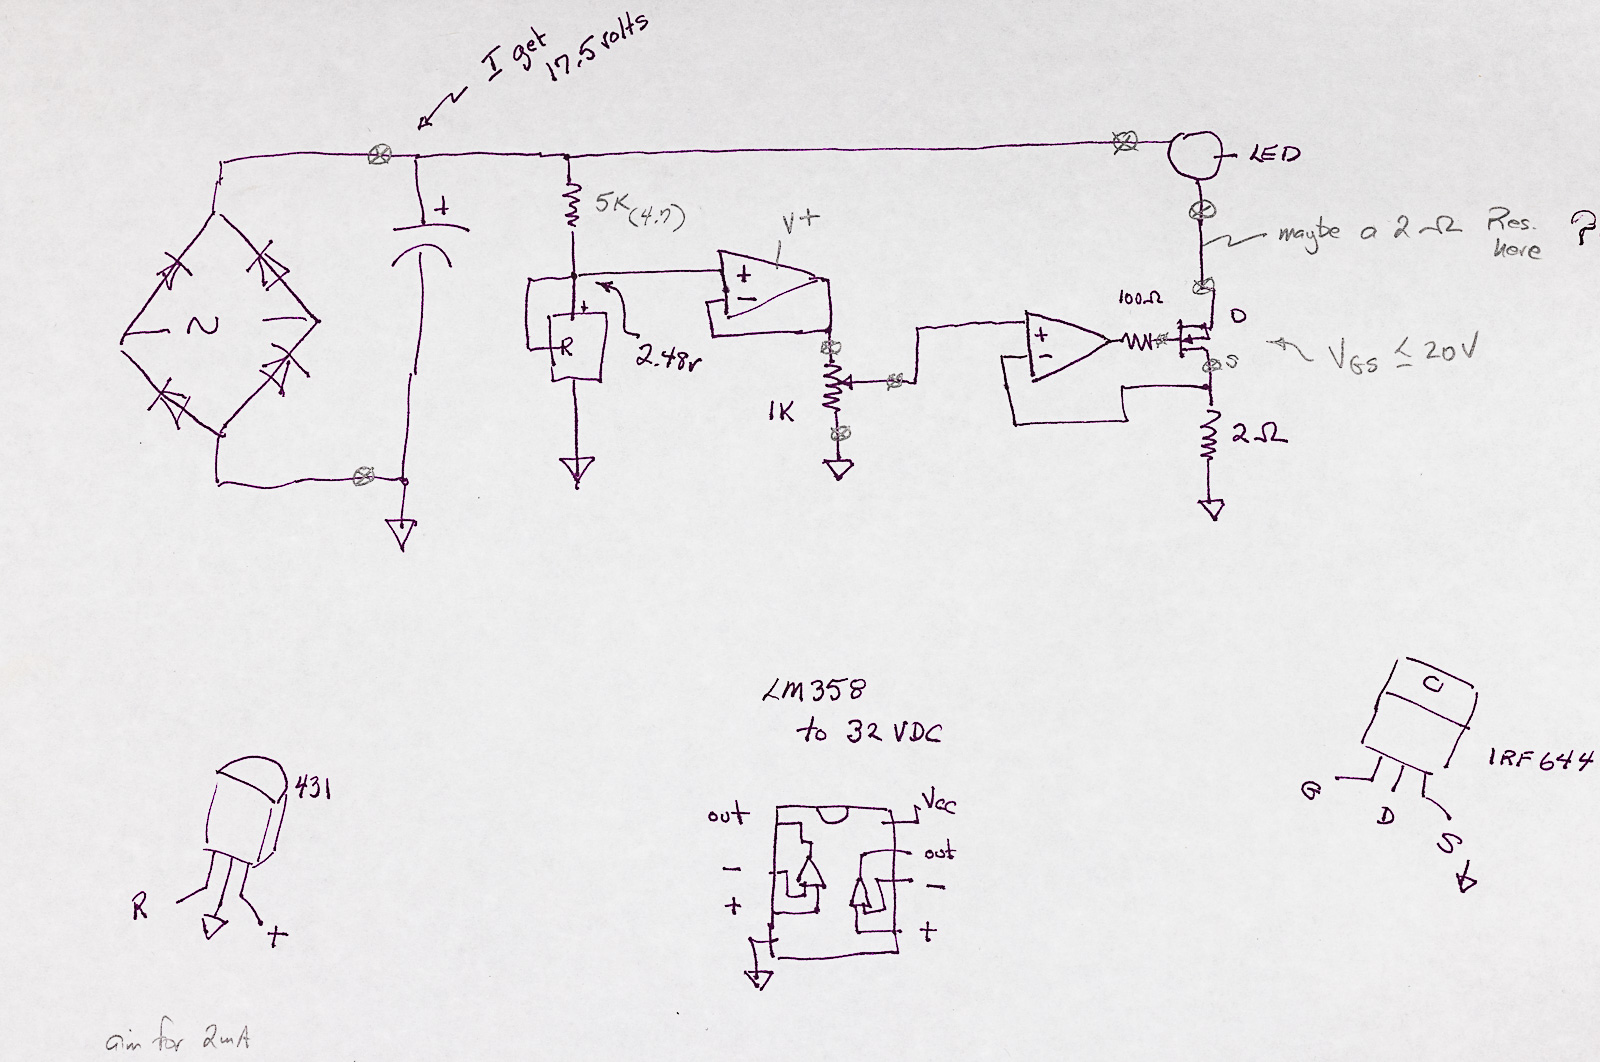 I get
17.5 volts
+
LED
5K (4.7)
V+
maybe a 2Ω Res. ?
here
+
-
~
+
R
2.48v
1K
+
-
100Ω
D
S
VGS ≤ 20V
2Ω
LM358
to 32 VDC
C
IRF644
G
D
S
431
R
+
out
-
+
Vcc
out
-
+
aim for 2mA